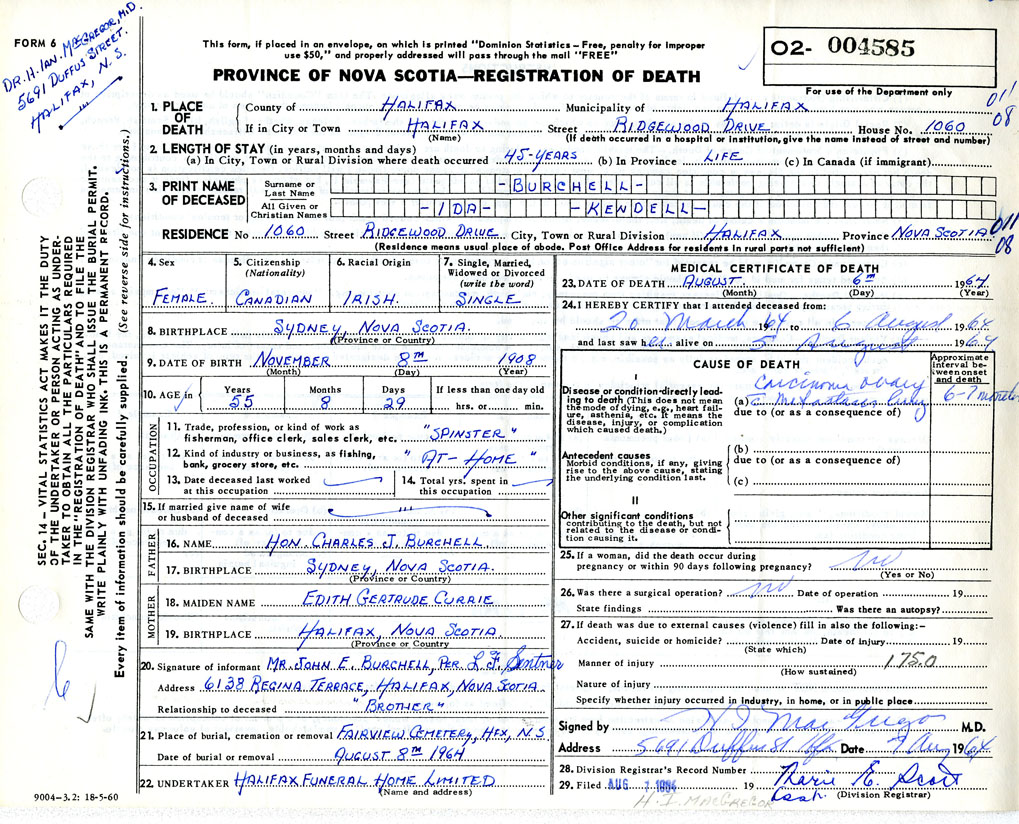 DR. H. IAN. MACGREGOR, M.D.
5691 DUFFUS STREET.
HALIFAX, N. S.
FORM 6
This form, if placed in an envelope, on which is printed "Dominion Statistics – Free, penalty for improper
use $50," and properly addressed will pass through the mail "FREE"
PROVINCE OF NOVA SCOTIA—REGISTRATION OF DEATH
02- 004585
For use of the Department only
011
08
1. PLACE OF DEATH
County of HALIFAX Municipality of HALIFAX
If in City or Town HALIFAX Street RIDGEWOOD DRIVE House No. 1060
(Name) (If death occurred in a hospital or institution, give the name instead of street and number)
2. LENGTH OF STAY (in years, months and days)
(a) In City, Town or Rural Division where death occurred 45-YEARS (b) In Province LIFE (c) In Canada (if immigrant)
3. PRINT NAME OF DECEASED
Surname or Last Name -BURCHELL-
All Given or Christian Names -IDA- -KENDELL-
RESIDENCE No 1060 Street RIDGEWOOD DRIVE City, Town or Rural Division HALIFAX Province NOVA SCOTIA
011
08
(Residence means usual place of abode. Post Office Address for residents in rural parts not sufficient)
4. Sex 5. Citizenship (Nationality) 6. Racial Origin 7. Single, Married, Widowed or Divorced (write the word)
FEMALE. CANADIAN IRISH. SINGLE
8. BIRTHPLACE SYDNEY, NOVA SCOTIA.
(Province or Country)
9. DATE OF BIRTH NOVEMBER 8TH 1908
(Month) (Day) (Year)
10. AGE in Years Months Days If less than one day old
55 8 29 hrs. or min.
OCCUPATION
11. Trade, profession, or kind of work as
fisherman, office clerk, sales clerk, etc. "SPINSTER"
12. Kind of industry or business, as fishing,
bank, grocery store, etc. "AT-HOME"
13. Date deceased last worked
at this occupation
14. Total yrs. spent in
this occupation
15. If married give name of wife
or husband of deceased
FATHER
16. NAME HON. CHARLES J. BURCHELL.
17. BIRTHPLACE SYDNEY, NOVA SCOTIA.
(Province or Country)
MOTHER
18. MAIDEN NAME EDITH GERTRUDE CURRIE
19. BIRTHPLACE HALIFAX, NOVA SCOTIA.
(Province or Country)
20. Signature of informant MR. JOHN E. BURCHELL, PER L F. Sentner
Address 6138 REGINA TERRACE, HALIFAX, NOVA SCOTIA
Relationship to deceased "BROTHER"
21. Place of burial, cremation or removal FAIRVIEW CEMETERY, HFX, N.S
Date of burial or removal AUGUST 8TH 1964
22. UNDERTAKER HALIFAX FUNERAL HOME LIMITED
(Name and address)
9004-3.2: 18-5-60
MEDICAL CERTIFICATE OF DEATH
23. DATE OF DEATH AUGUST 6TH 1964
(Month) (Day) (Year)
24. I HEREBY CERTIFY that I attended deceased from:
20 March 1964 to 6 August 1964
and last saw her alive on 5 August 1964
CAUSE OF DEATH
Approximate interval between onset and death
I
Disease or condition directly leading to death (This does not mean the mode of dying, e.g., heart failure, asthma, etc. It means the disease, injury, or complication which caused death.)
Carcinoma ovary
(a) c̄ Metastases lung 6-7 months
due to (or as a consequence of)
Antecedent causes
Morbid conditions, if any, giving rise to the above cause, stating the underlying condition last.
(b)
due to (or as a consequence of)
(c)
II
Other significant conditions
contributing to the death, but not related to the disease or condition causing it.
25. If a woman, did the death occur during
pregnancy or within 90 days following pregnancy? no
(Yes or No)
26. Was there a surgical operation? no Date of operation 19
State findings Was there an autopsy?
27. If death was due to external causes (violence) fill in also the following:–
Accident, suicide or homicide? Date of injury 19
(State which)
Manner of injury 1750
(How sustained)
Nature of injury
Specify whether injury occurred in industry, in home, or in public place
Signed by H I MacGregor M.D.
Address 5691 Duffus St Hfx Date 7 Aug 1964
28. Division Registrar's Record Number
29. Filed AUG 7 1964 19 Marie E. Scott
Asst. (Division Registrar)
H. I. MACGREGOR
SEC. 14 – VITAL STATISTICS ACT MAKES IT THE DUTY
OF THE UNDERTAKER OR PERSON ACTING AS UNDER-
TAKER TO OBTAIN ALL THE PARTICULARS REQUIRED
IN THE "REGISTRATION OF DEATH" AND TO FILE THE
SAME WITH THE DIVISION REGISTRAR WHO SHALL ISSUE THE BURIAL PERMIT.
WRITE PLAINLY WITH UNFADING INK. THIS IS A PERMANENT RECORD.
Every item of information should be carefully supplied. (See reverse side for instructions.)